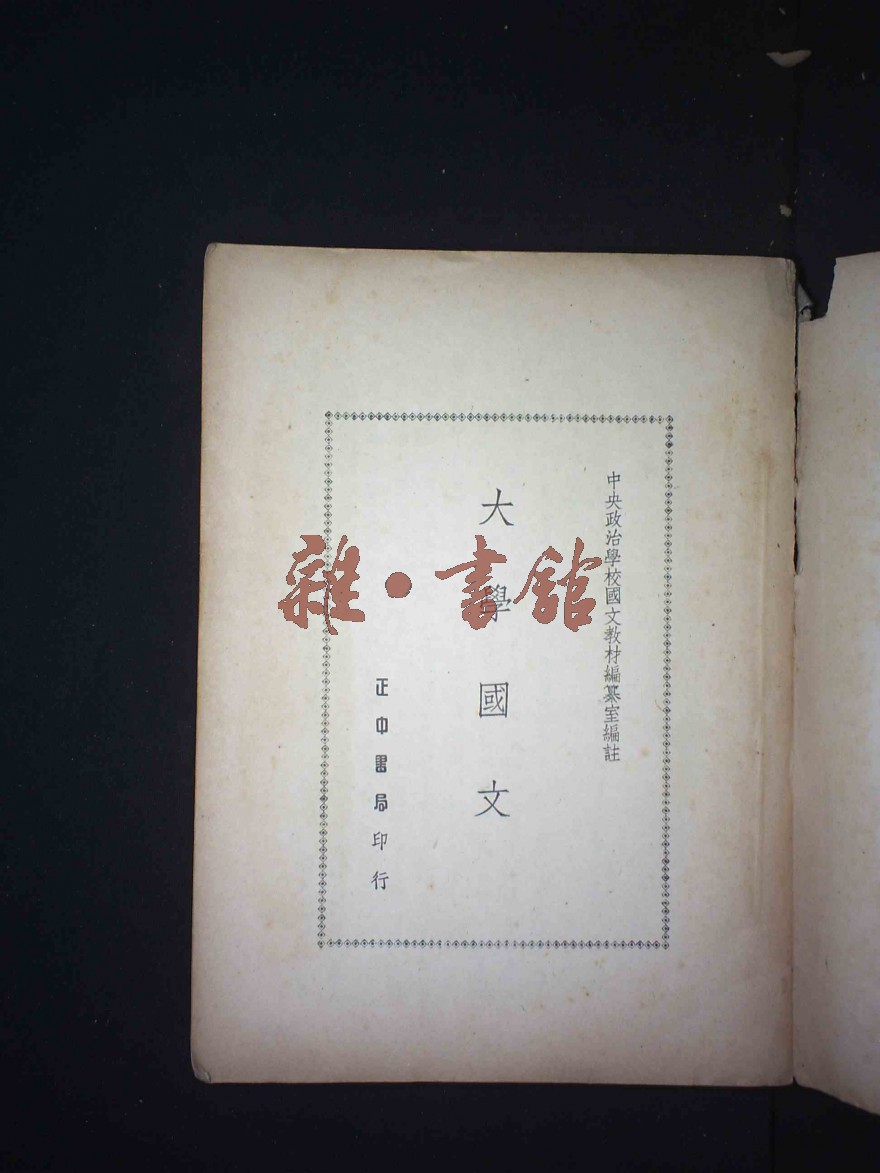 中央政治學校國文教材編纂室編註
大學國文
正中書局印行
雜·書館